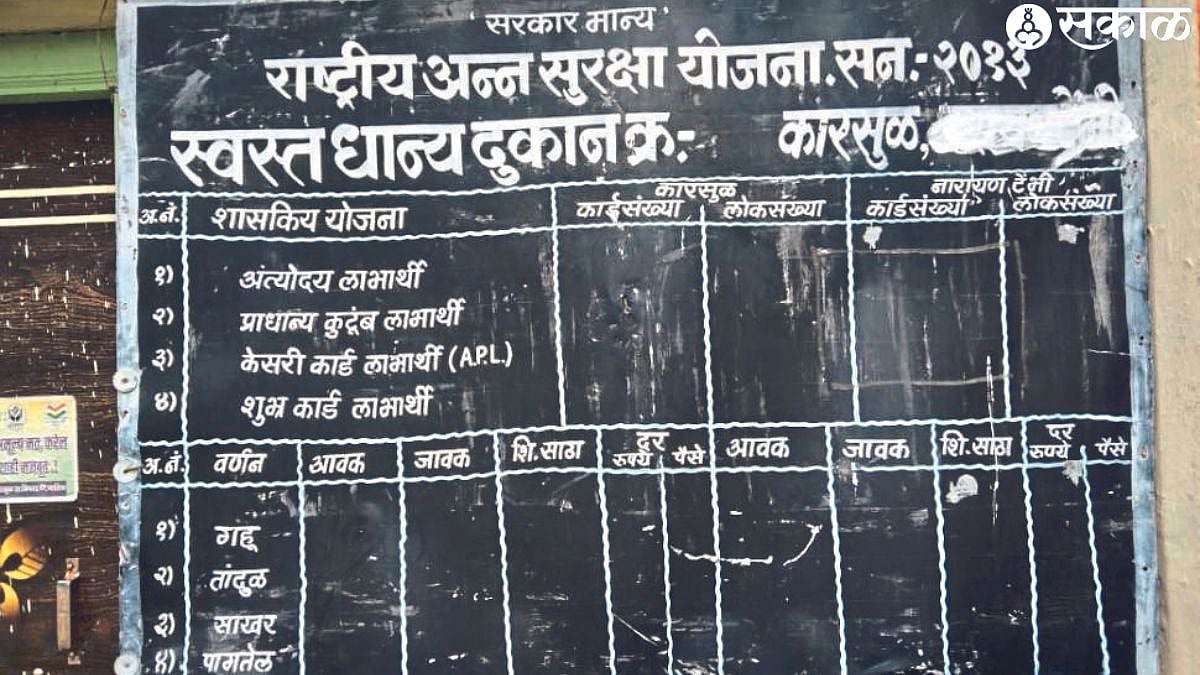 सकाळ
‘ सरकार मान्य ’
राष्ट्रीय अन्न सुरक्षा योजना.सन.-२०१३
स्वस्त धान्य दुकान क्र.- कारसुळ,
कारसुळ नारायण टेंभी
अ.नं. शासकिय योजना कार्डसंख्या लोकसंख्या कार्डसंख्या लोकसंख्या
१) अंत्योदय लाभार्थी
२) प्राधान्य कुटूंब लाभार्थी
३) केसरी कार्ड लाभार्थी (A.P.L.)
४) शुभ्र कार्ड लाभार्थी
अ.नं. वर्णन आवक जावक शि.साठा दर रुपये पैसे आवक जावक शि.साठा दर रुपये पैसे
१) गहू
२) तांदुळ
३) साखर
४) पामतेल